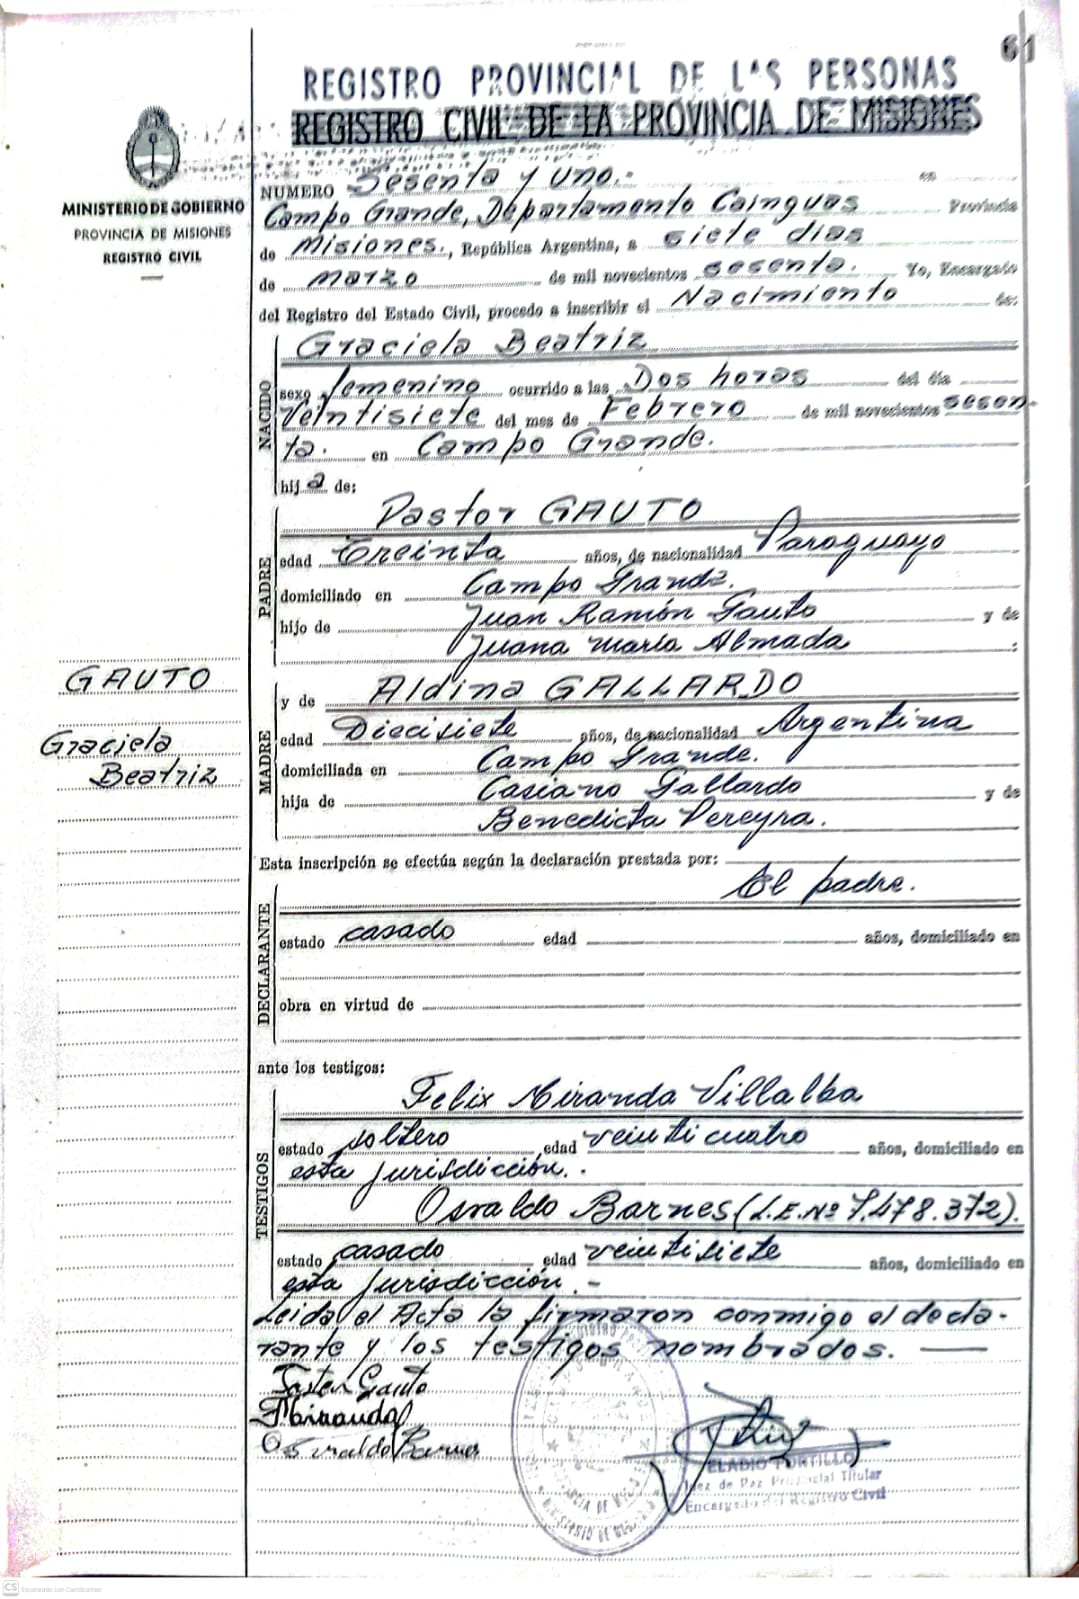 61
REGISTRO PROVINCIAL DE LAS PERSONAS
REGISTRO CIVIL DE LA PROVINCIA DE MISIONES
MINISTERIO DE GOBIERNO
PROVINCIA DE MISIONES
REGISTRO CIVIL
NUMERO Sesenta y uno.- en
Campo Grande, Departamento Cainguas Provincia
de Misiones., República Argentina, a siete días
de marzo de mil novecientos sesenta. Yo, Encargado
del Registro del Estado Civil, procedo a inscribir el Nacimiento de:
NACIDO
Graciela Beatriz
sexo femenino ocurrido a las Dos horas del día
Veintisiete del mes de Febrero de mil novecientos sesen-
ta. en Campo Grande.
hija de:
PADRE
Pastor GAUTO
edad Treinta años, de nacionalidad Paraguayo
domiciliado en Campo Grande.
hijo de Juan Ramón Gauto y de
Juana María Almada :
GAUTO
Graciela
Beatriz
MADRE
y de Aldina GALLARDO
edad Diecisiete años, de nacionalidad Argentina
domiciliada en Campo Grande.
hija de Casiano Gallardo y de
Benedicta Pereyra.
Esta inscripción se efectúa según la declaración prestada por:
El padre.
DECLARANTE
estado casado edad años, domiciliado en
obra en virtud de
ante los testigos:
TESTIGOS
Felix Miranda Villalba
estado soltero edad veinticuatro años, domiciliado en
esta jurisdicción.
Osvaldo Barnes (L.E.Nº 7.478.372).
estado casado edad veintisiete años, domiciliado en
esta jurisdicción.-
Leida el Acta la firmaron conmigo el decla-
rante y los testigos nombrados.
Pastor Gauto
FMiranda
Osvaldo Barnes
ELADIO PORTILLO
Juez de Paz Provincial Titular
Encargado del Registro Civil
CS Escaneado con CamScanner